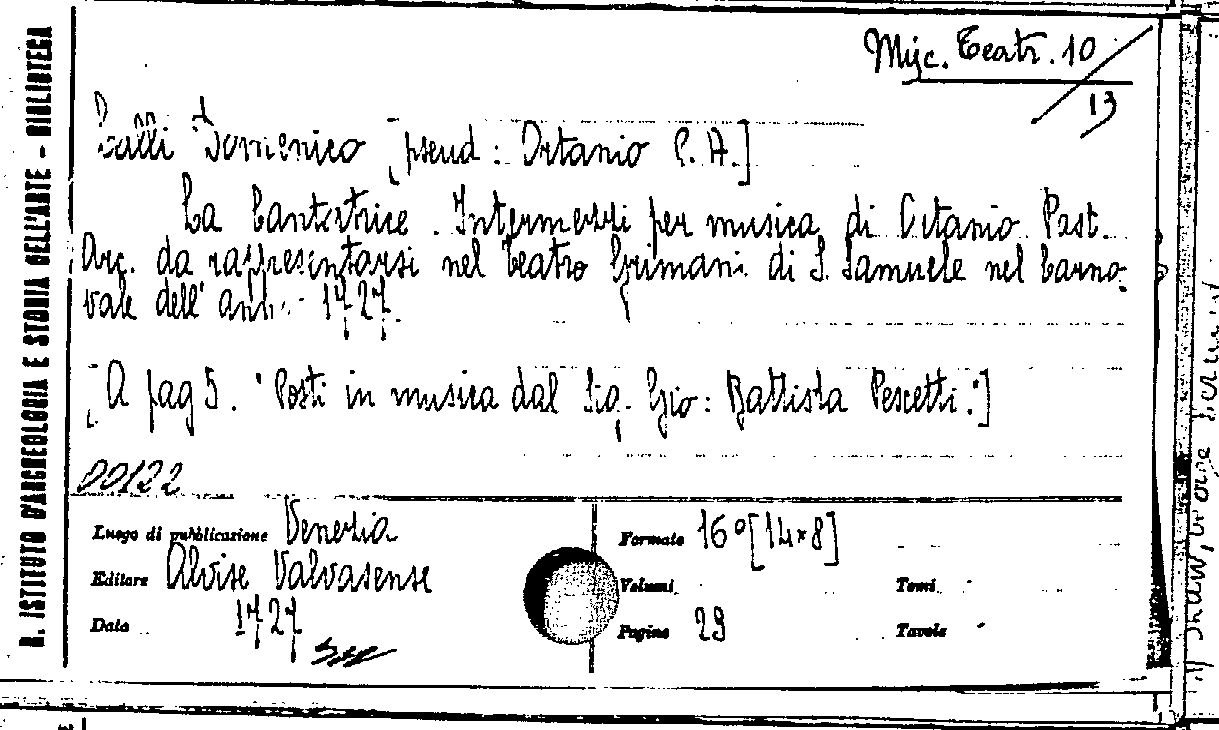 R. ISTITUTO D'ARCHEOLOGIA E STORIA DELL'ARTE - BIBLIOTECA
Misc. Teatr. 10
13
Lalli Domenico [pseud: Ortanio P. A.]
La Cantatrice. Intermezzi per musica di Ortanio Past.
Arc. da rappresentarsi nel Teatro Grimani di S. Samuele nel Carno-
vale dell' anno 1727.
[A pag 5. "Posti in musica dal Sig. Gio: Battista Pescetti."]
00122
Luogo di pubblicazione Venezia
Editore Alvise Valvasense
Data 1727
Formato 16°[14×8]
Volumi
Tomi
Pagine 29
Tavole